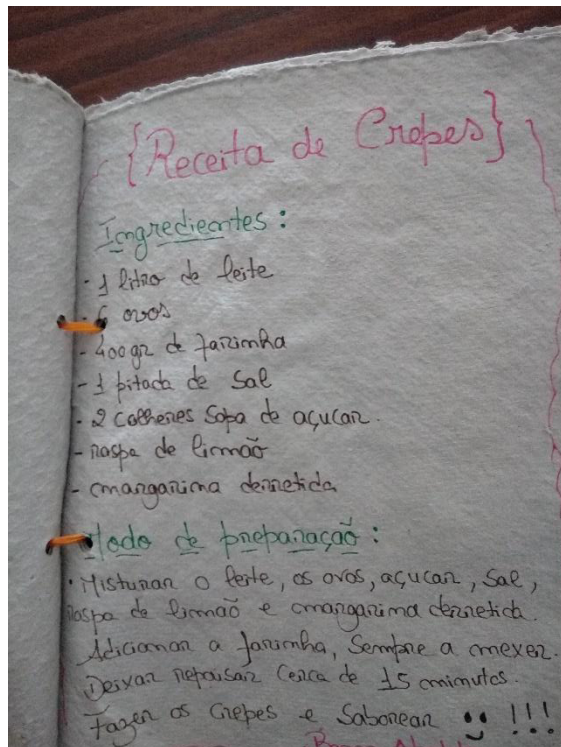 {Receita de Crepes}
Ingredientes:
- 1 litro de leite
- 6 ovos
- 400gr de farinha
- 1 pitada de sal
- 2 colheres sopa de açucar.
- raspa de limão
- margarina derretida
Modo de preparação:
• Misturar o leite, os ovos, açucar, sal,
raspa de limão e margarina derretida.
Adicionar a farinha, sempre a mexer.
Deixar repousar cerca de 15 minutos.
Fazer os crepes e saborear !!!